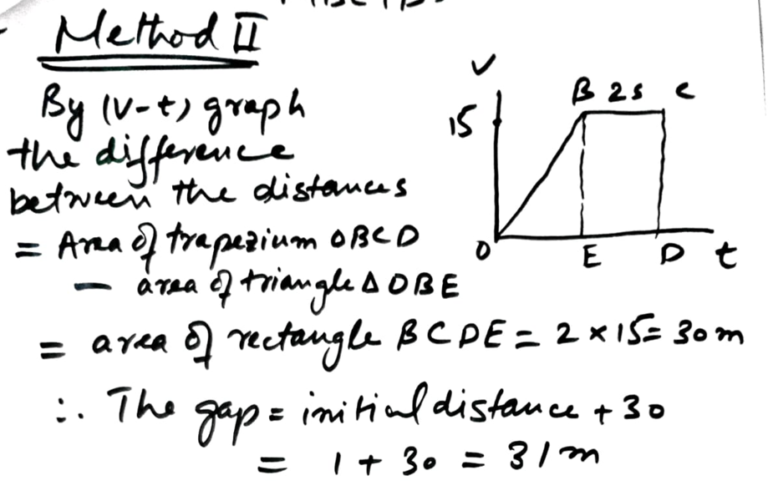 Method II
By (V-t) graph
the difference
between the distances
= Area of trapezium OBCD
— area of triangle Δ OBE
= area of rectangle BCDE = 2 × 15 = 30 m
∴ The gap = initial distance + 30
= 1 + 30 = 31 m
V
B 2s C
15
O E D t